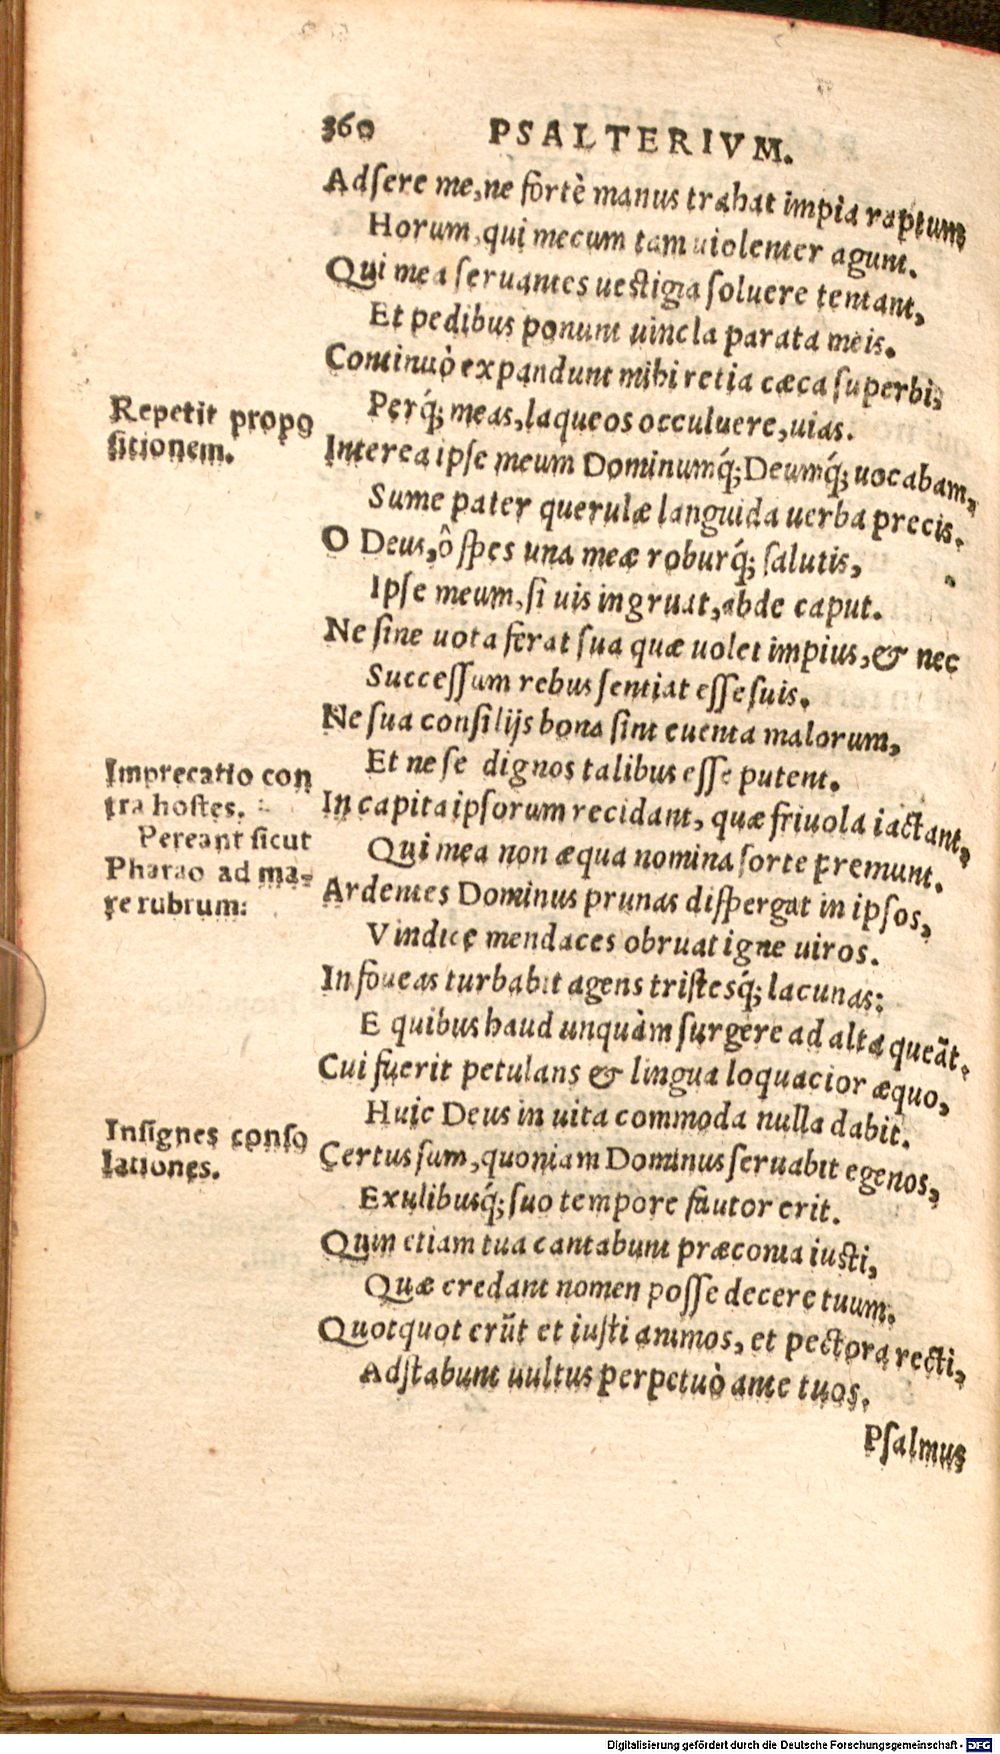 360 PSALTERIVM.
Adſere me, ne fortè manus trahat impia raptum
Horum, qui mecum tam uiolenter agunt.
Qui mea ſeruantes ueſtigia ſoluere tentant,
Et pedibus ponunt uincla parata meis.
Continuò expandunt mihi retia cæca ſuperbi,
Perq́; meas, laqueos occuluere, uias.
Repetit propo
ſitionem.
Interea ipſe meum Dominumq́; Deumq́; uocabam,
Sume pater querulæ languida uerba precis.
O Deus, ô ſpes una meæ roburq́; ſalutis,
Ipſe meum, ſi uis ingruat, abde caput.
Ne ſine uota ferat ſua quæ uolet impius, & nec
Succeſſum rebus ſentiat eſſe ſuis.
Ne ſua conſilijs bona ſint euenta malorum,
Et ne ſe dignos talibus eſſe putent.
Imprecatio con
tra hoſtes.
Pereant ſicut
Pharao ad ma-
re rubrum:
In capita ipſorum recidant, quæ friuola iactant,
Qui mea non æqua nomina ſorte premunt.
Ardentes Dominus prunas diſpergat in ipſos,
Vindice mendaces obruat igne uiros.
In foueas turbabit agens triſtesq́; lacunas:
E quibus haud unquàm ſurgere ad alta queãt.
Cui fuerit petulans & lingua loquacior æquo,
Huic Deus in uita commoda nulla dabit.
Inſignes conſo
lationes.
Certus ſum, quoniam Dominus ſeruabit egenos,
Exulibusq́; ſuo tempore fautor erit.
Quin etiam tua cantabunt præconia iuſti,
Quæ credant nomen poſſe decere tuum.
Quotquot erũt et iuſti animos, et pectora recti,
Adſtabunt uultus perpetuò ante tuos.
Pſalmus
Digitalisierung gefördert durch die Deutsche Forschungsgemeinschaft - DFG